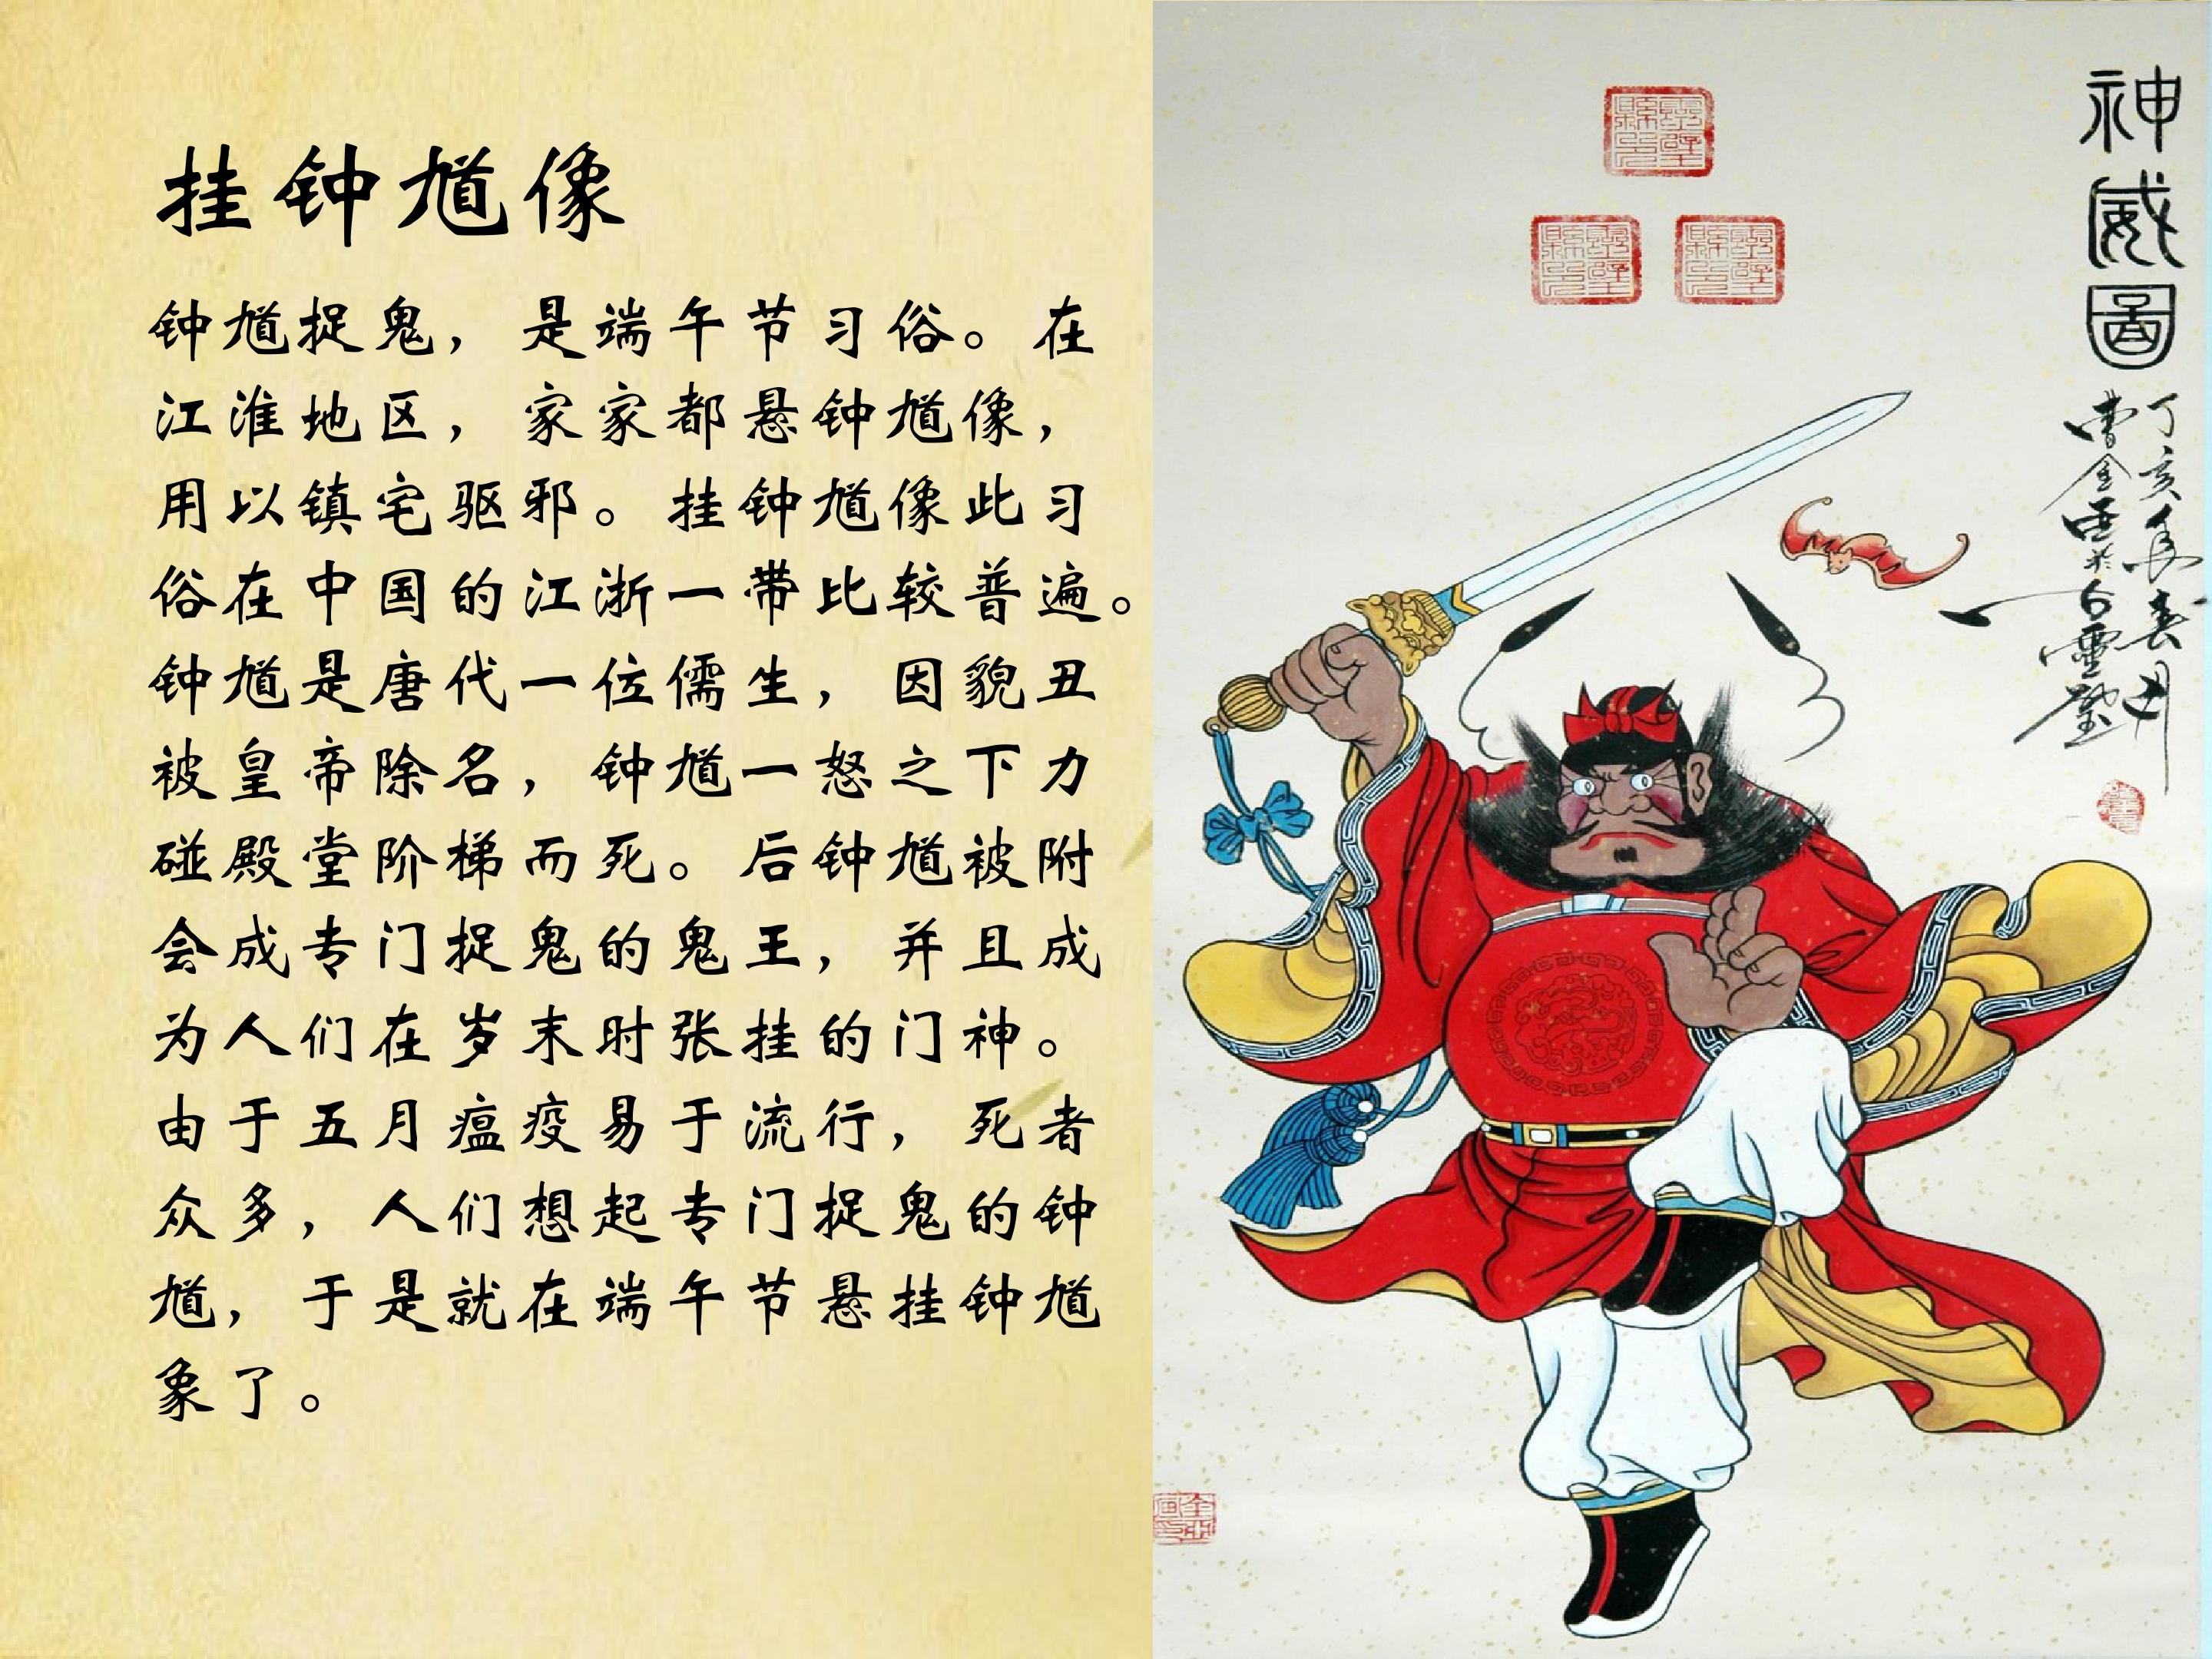 挂钟馗像
钟馗捉鬼，是端午节习俗。在
江淮地区，家家都悬钟馗像，
用以镇宅驱邪。挂钟馗像此习
俗在中国的江浙一带比较普遍。
钟馗是唐代一位儒生，因貌丑
被皇帝除名，钟馗一怒之下力
碰殿堂阶梯而死。后钟馗被附
会成专门捉鬼的鬼王，并且成
为人们在岁末时张挂的门神。
由于五月瘟疫易于流行，死者
众多，人们想起专门捉鬼的钟
馗，于是就在端午节悬挂钟馗
象了。
神威圖
丁亥年春月
靈璧縣印
靈璧縣印
靈璧縣印